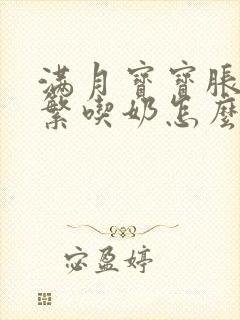 满月寶寶脹
繁喫奶怎麼
宓盈婷